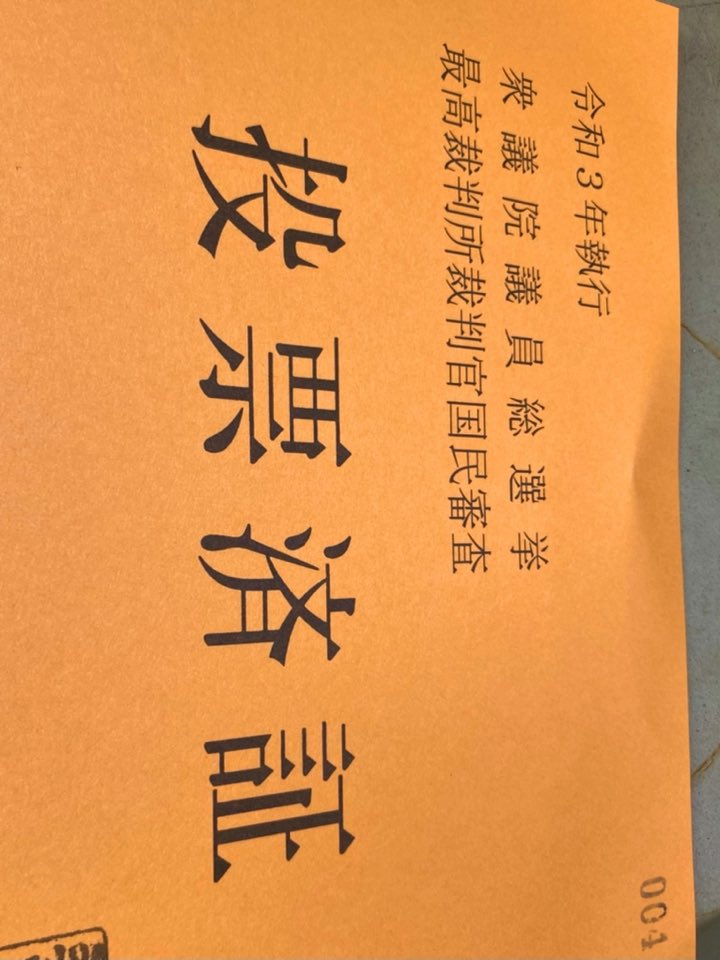 004
令和3年執行
衆議院議員総選挙
最高裁判所裁判官国民審査
投票済証